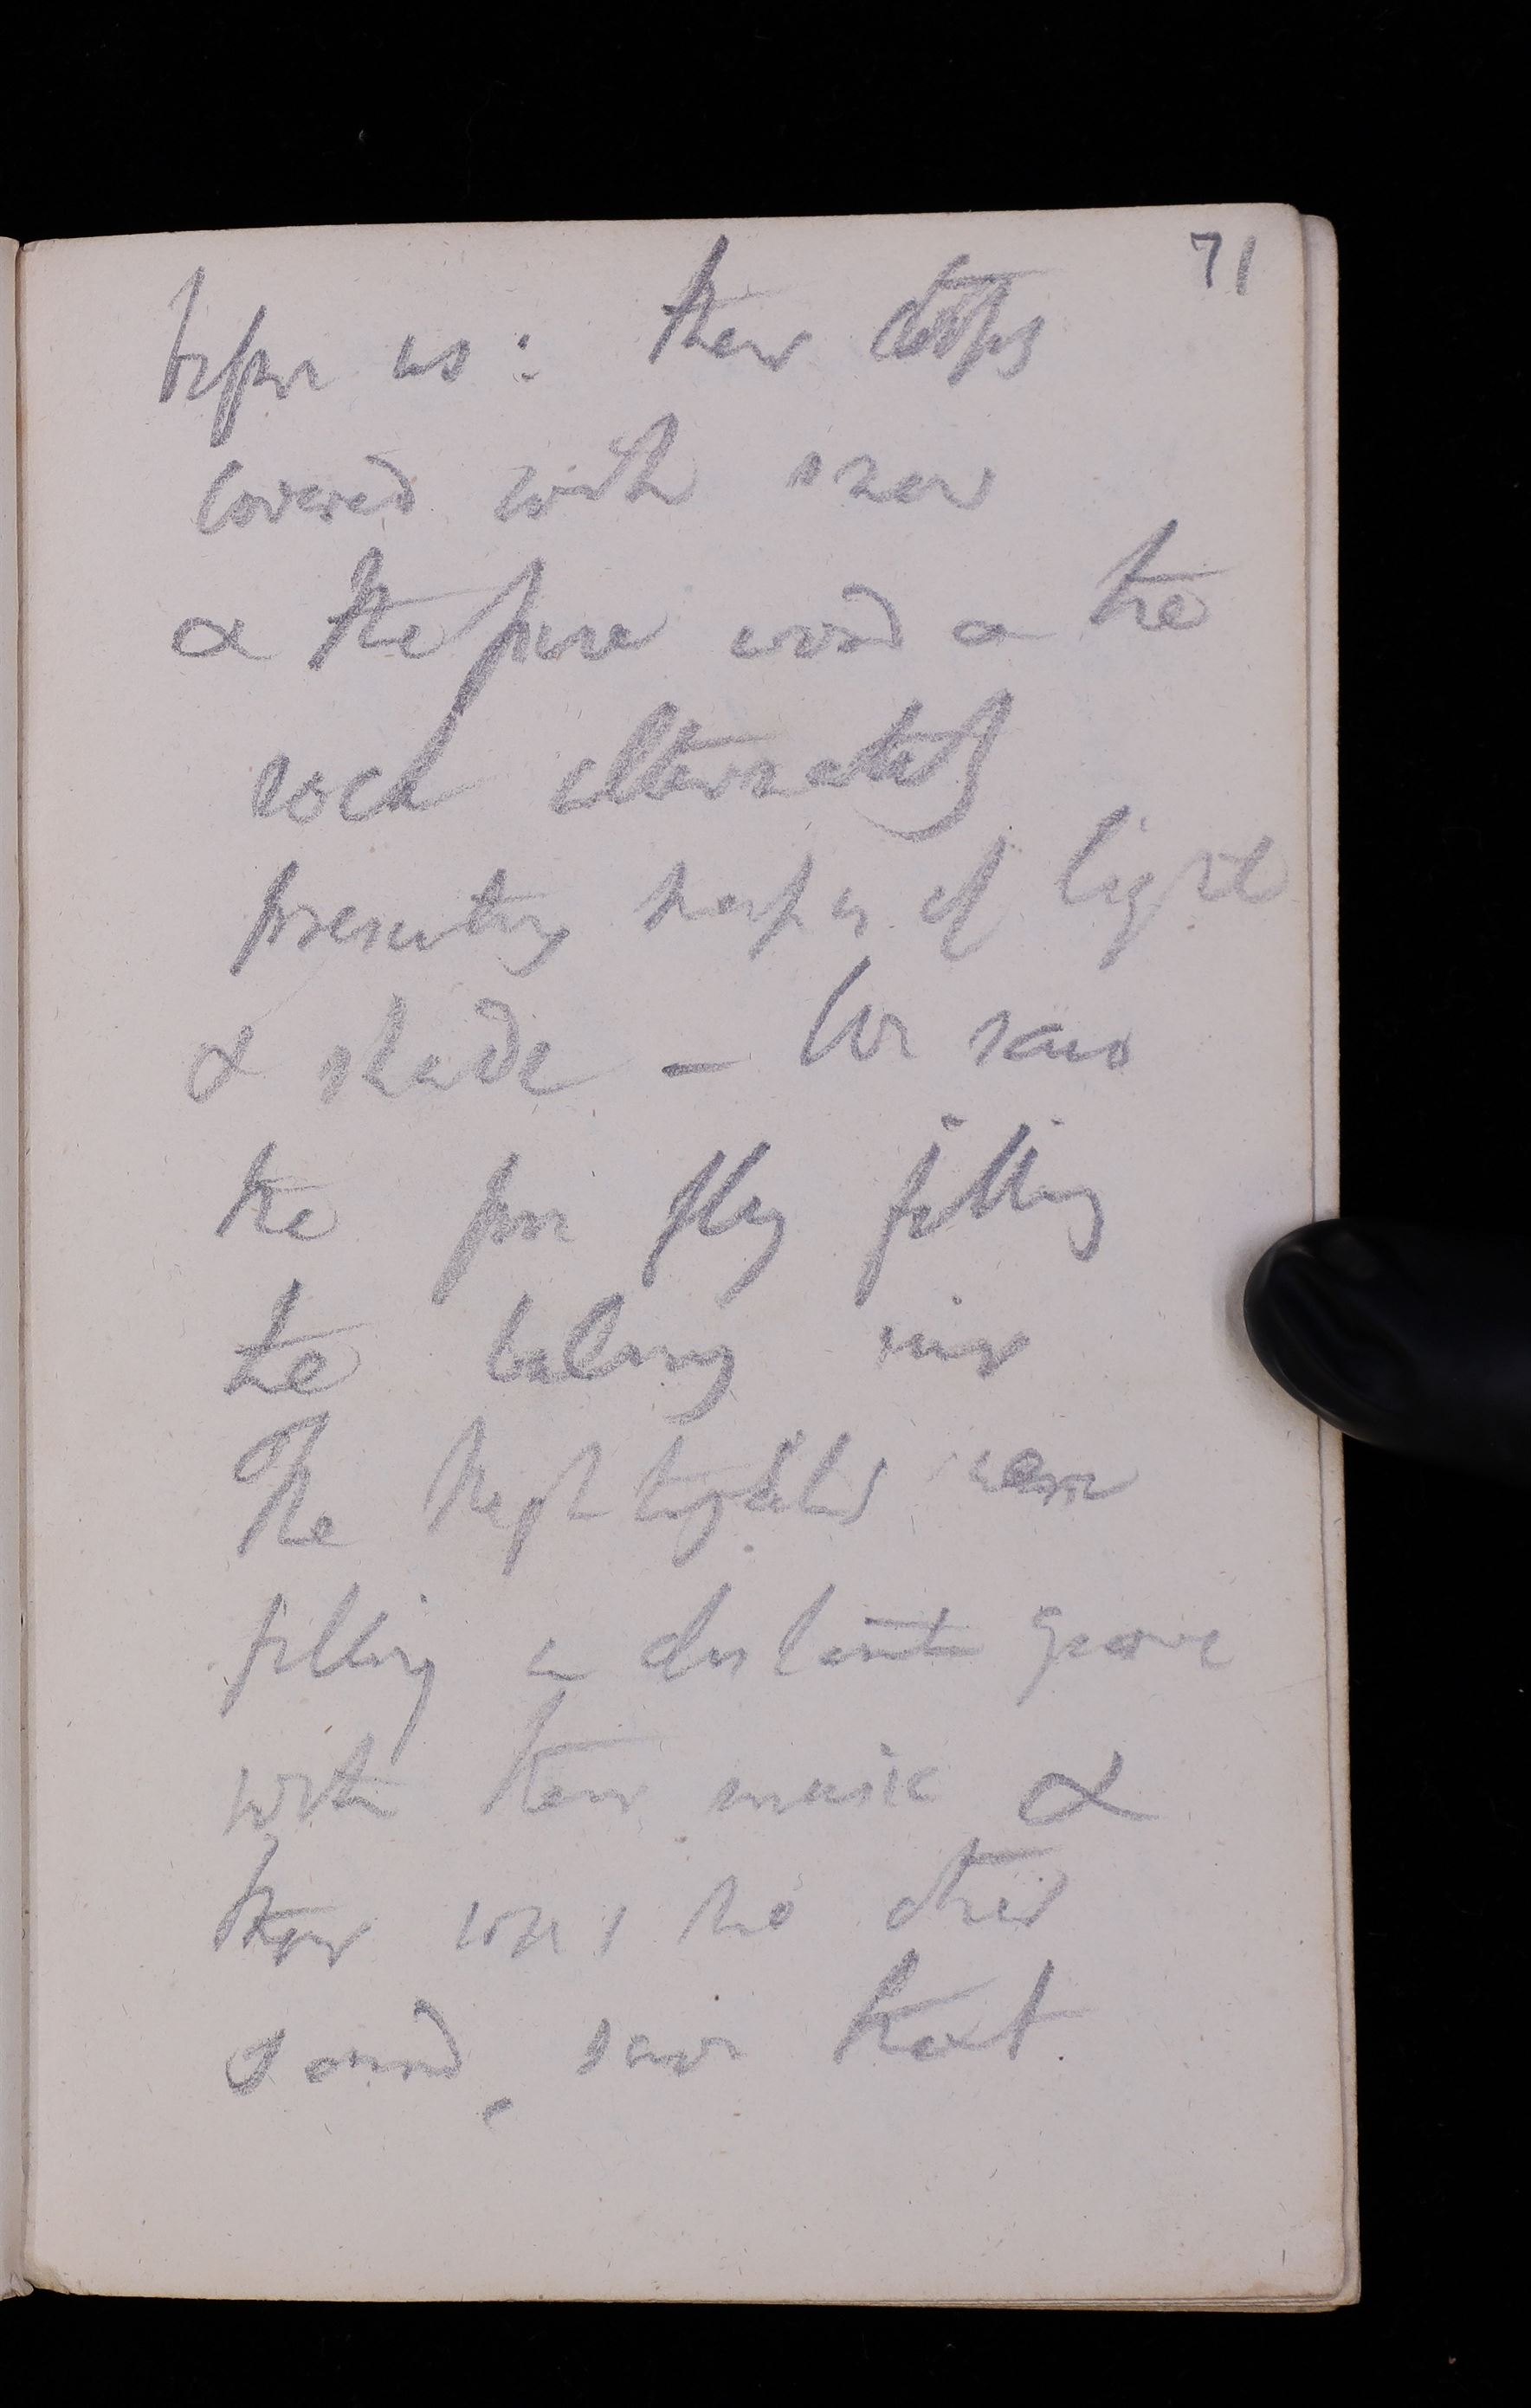 71
before us: their tops
covered with snow
& the pine wood & the
rock alternately
presenting shapes of light
& shade — We saw
the fire fly filling
the balmy air
The Nightingales were
filling a distant grove
with their music &
there was no other
sound, save that